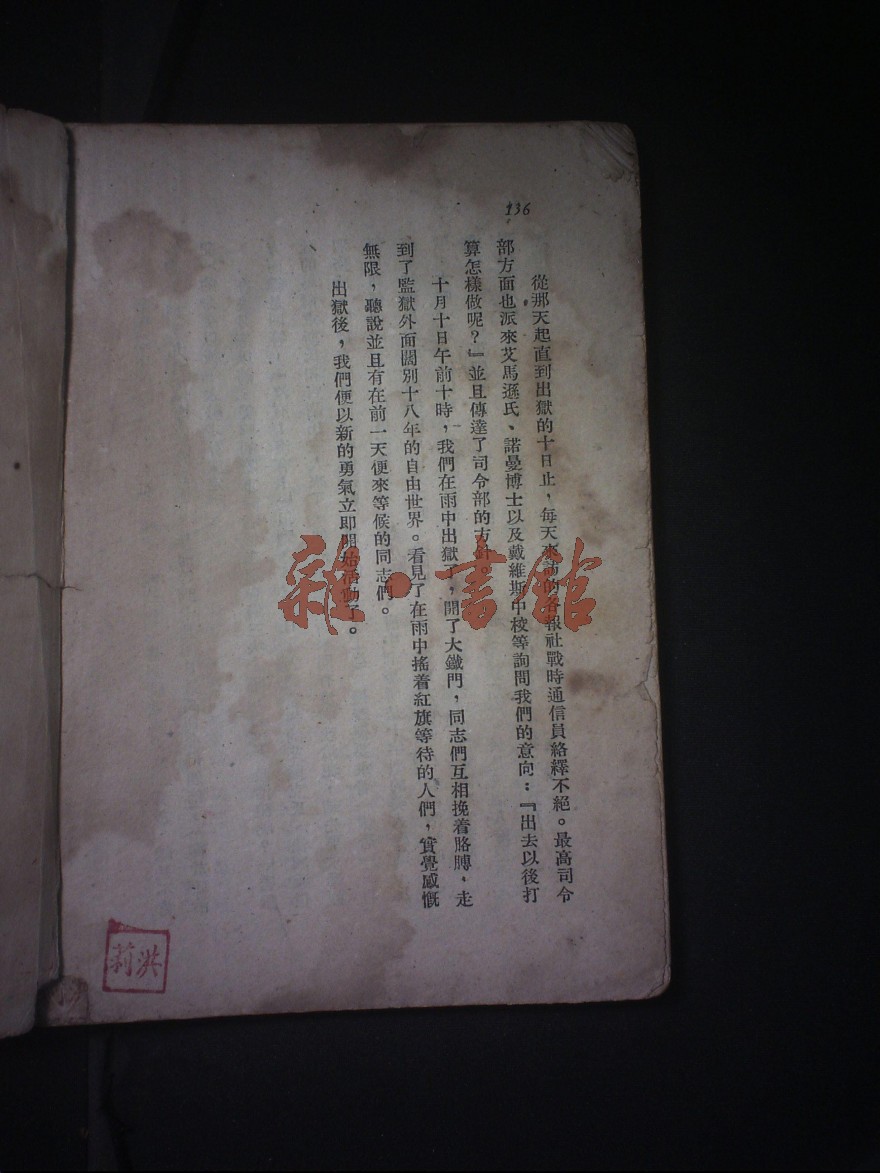 136
從那天起直到出獄的十日止，每天來訪的各報社戰時通信員絡繹不絕。最高司令
部方面也派來艾馬遜氏、諾曼博士以及戴維斯中校等詢問我們的意向：『出去以後打
算怎樣做呢？』並且傳達了司令部的方針。
十月十日午前十時，我們在雨中出獄了，開了大鐵門，同志們互相挽着胳膊，走
到了監獄外面闊別十八年的自由世界。看見了在雨中搖着紅旗等待的人們，實覺感慨
無限，聽說並且有在前一天便來等候的同志們。
出獄後，我們便以新的勇氣立即開始活動了。
雜·書館
洪莉